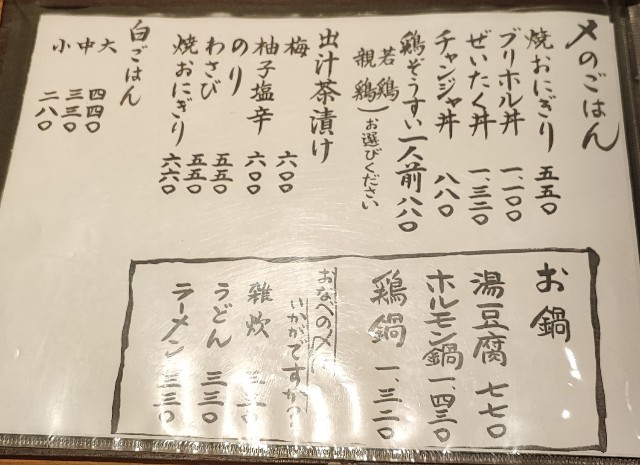 〆のごはん
焼おにぎり 五五〇
ブリホル丼 一、一〇〇
ぜいたく丼 一、三二〇
チャンジャ丼 八八〇
鶏ぞうすい一人前 八八〇
若鶏
親鶏)お選びください
出汁茶漬け
梅 六〇〇
柚子塩辛 六〇〇
のり 五五〇
わさび 五五〇
焼おにぎり 六六〇
白ごはん
大 四四〇
中 三三〇
小 二八〇
お鍋
湯豆腐 七七〇
ホルモン鍋 一、四三〇
鶏鍋 一、三二〇
おなべの〆に
いかがですか?
雑炊 三三〇
うどん 三三〇
ラーメン 三三〇